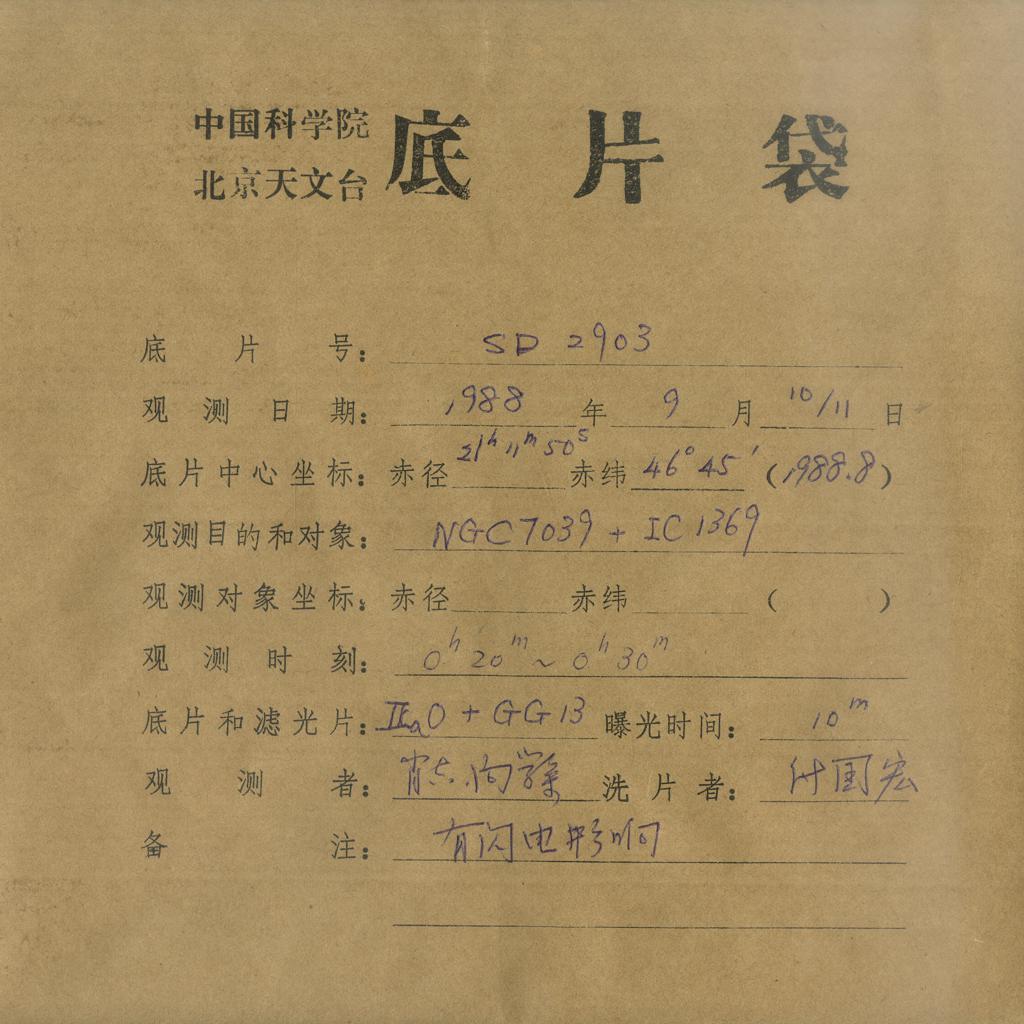 中国科学院
北京天文台
底片袋
底片号： SD 2903
观测日期： 1988 年 9 月 10/11 日
底片中心坐标： 赤径 21ʰ 11ᵐ 50ˢ 赤纬 46° 45′ (1988.8)
观测目的和对象： NGC7039 + IC1369
观测对象坐标： 赤径 赤纬 ( )
观测时刻： 0ʰ 20ᵐ ~ 0ʰ 30ᵐ
底片和滤光片： IIaO + GG13 曝光时间： 10ᵐ
观测者： 洗片者： 付国宏
备注： 有闪电影响